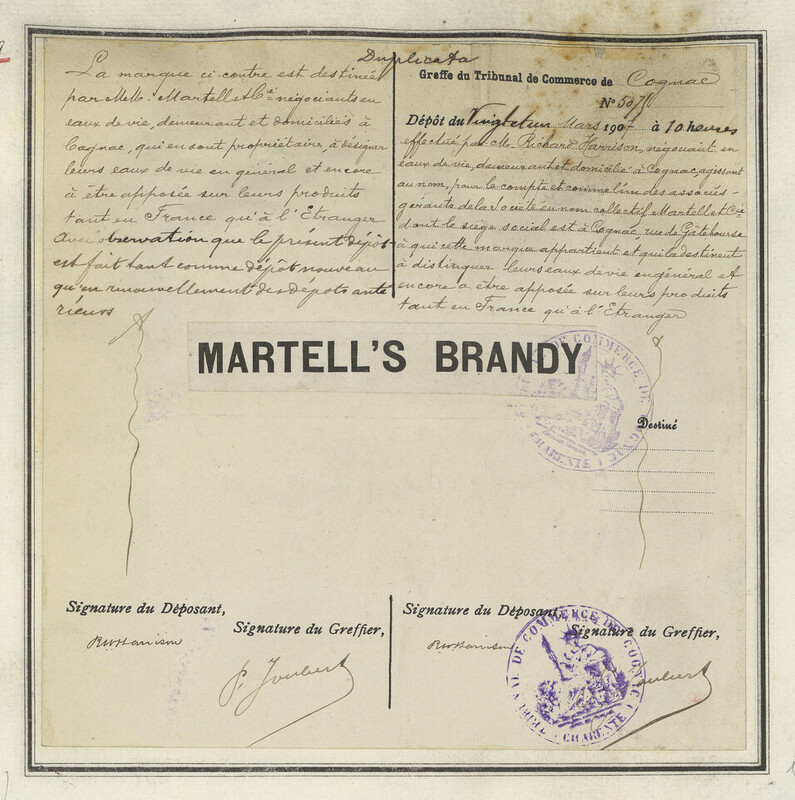 Duplicata
La marque ci-contre est destinée
par MMrs. Martell et Cie négociants en
eaux de vie, demeurant et domiciliés à
Cognac, qui en sont propriétaires, à désigner
leurs eaux de vie en général et encore
à être apposée sur leurs produits
tant en France qu'à l'Etranger
avec observation que le présent dépôt
est fait tant comme dépôt nouveau
qu'en renouvellement des dépôts anté
rieurs
Greffe du Tribunal de Commerce de Cognac
No
Dépôt du Vingt et un Mars 190 à 10 heures
effectué par M. Richard Harrison, négociant en
eaux de vie, demeurant et domicilié à Cognac, agissant
au nom, pour le compte et comme l'un des associés-
gérants de la Société en nom collectif Martell et Cie
dont le siège social est à Cognac, rue de Gâtebourse
à qui cette marque appartient et qui la destinent
à distinguer leurs eaux de vie en général et
encore a être apposée sur leurs produits
tant en France qu'à l'Etranger
MARTELL'S BRANDY
DE COMMERCE DE COGNAC
CHARENTE
Destiné
Signature du Déposant,
Signature du Greffier,
RWHarrison
P. Joubert
Signature du Déposant,
Signature du Greffier,
RWHarrison
Joubert
TRIBUNAL DE COMMERCE DE COGNAC
CHARENTE